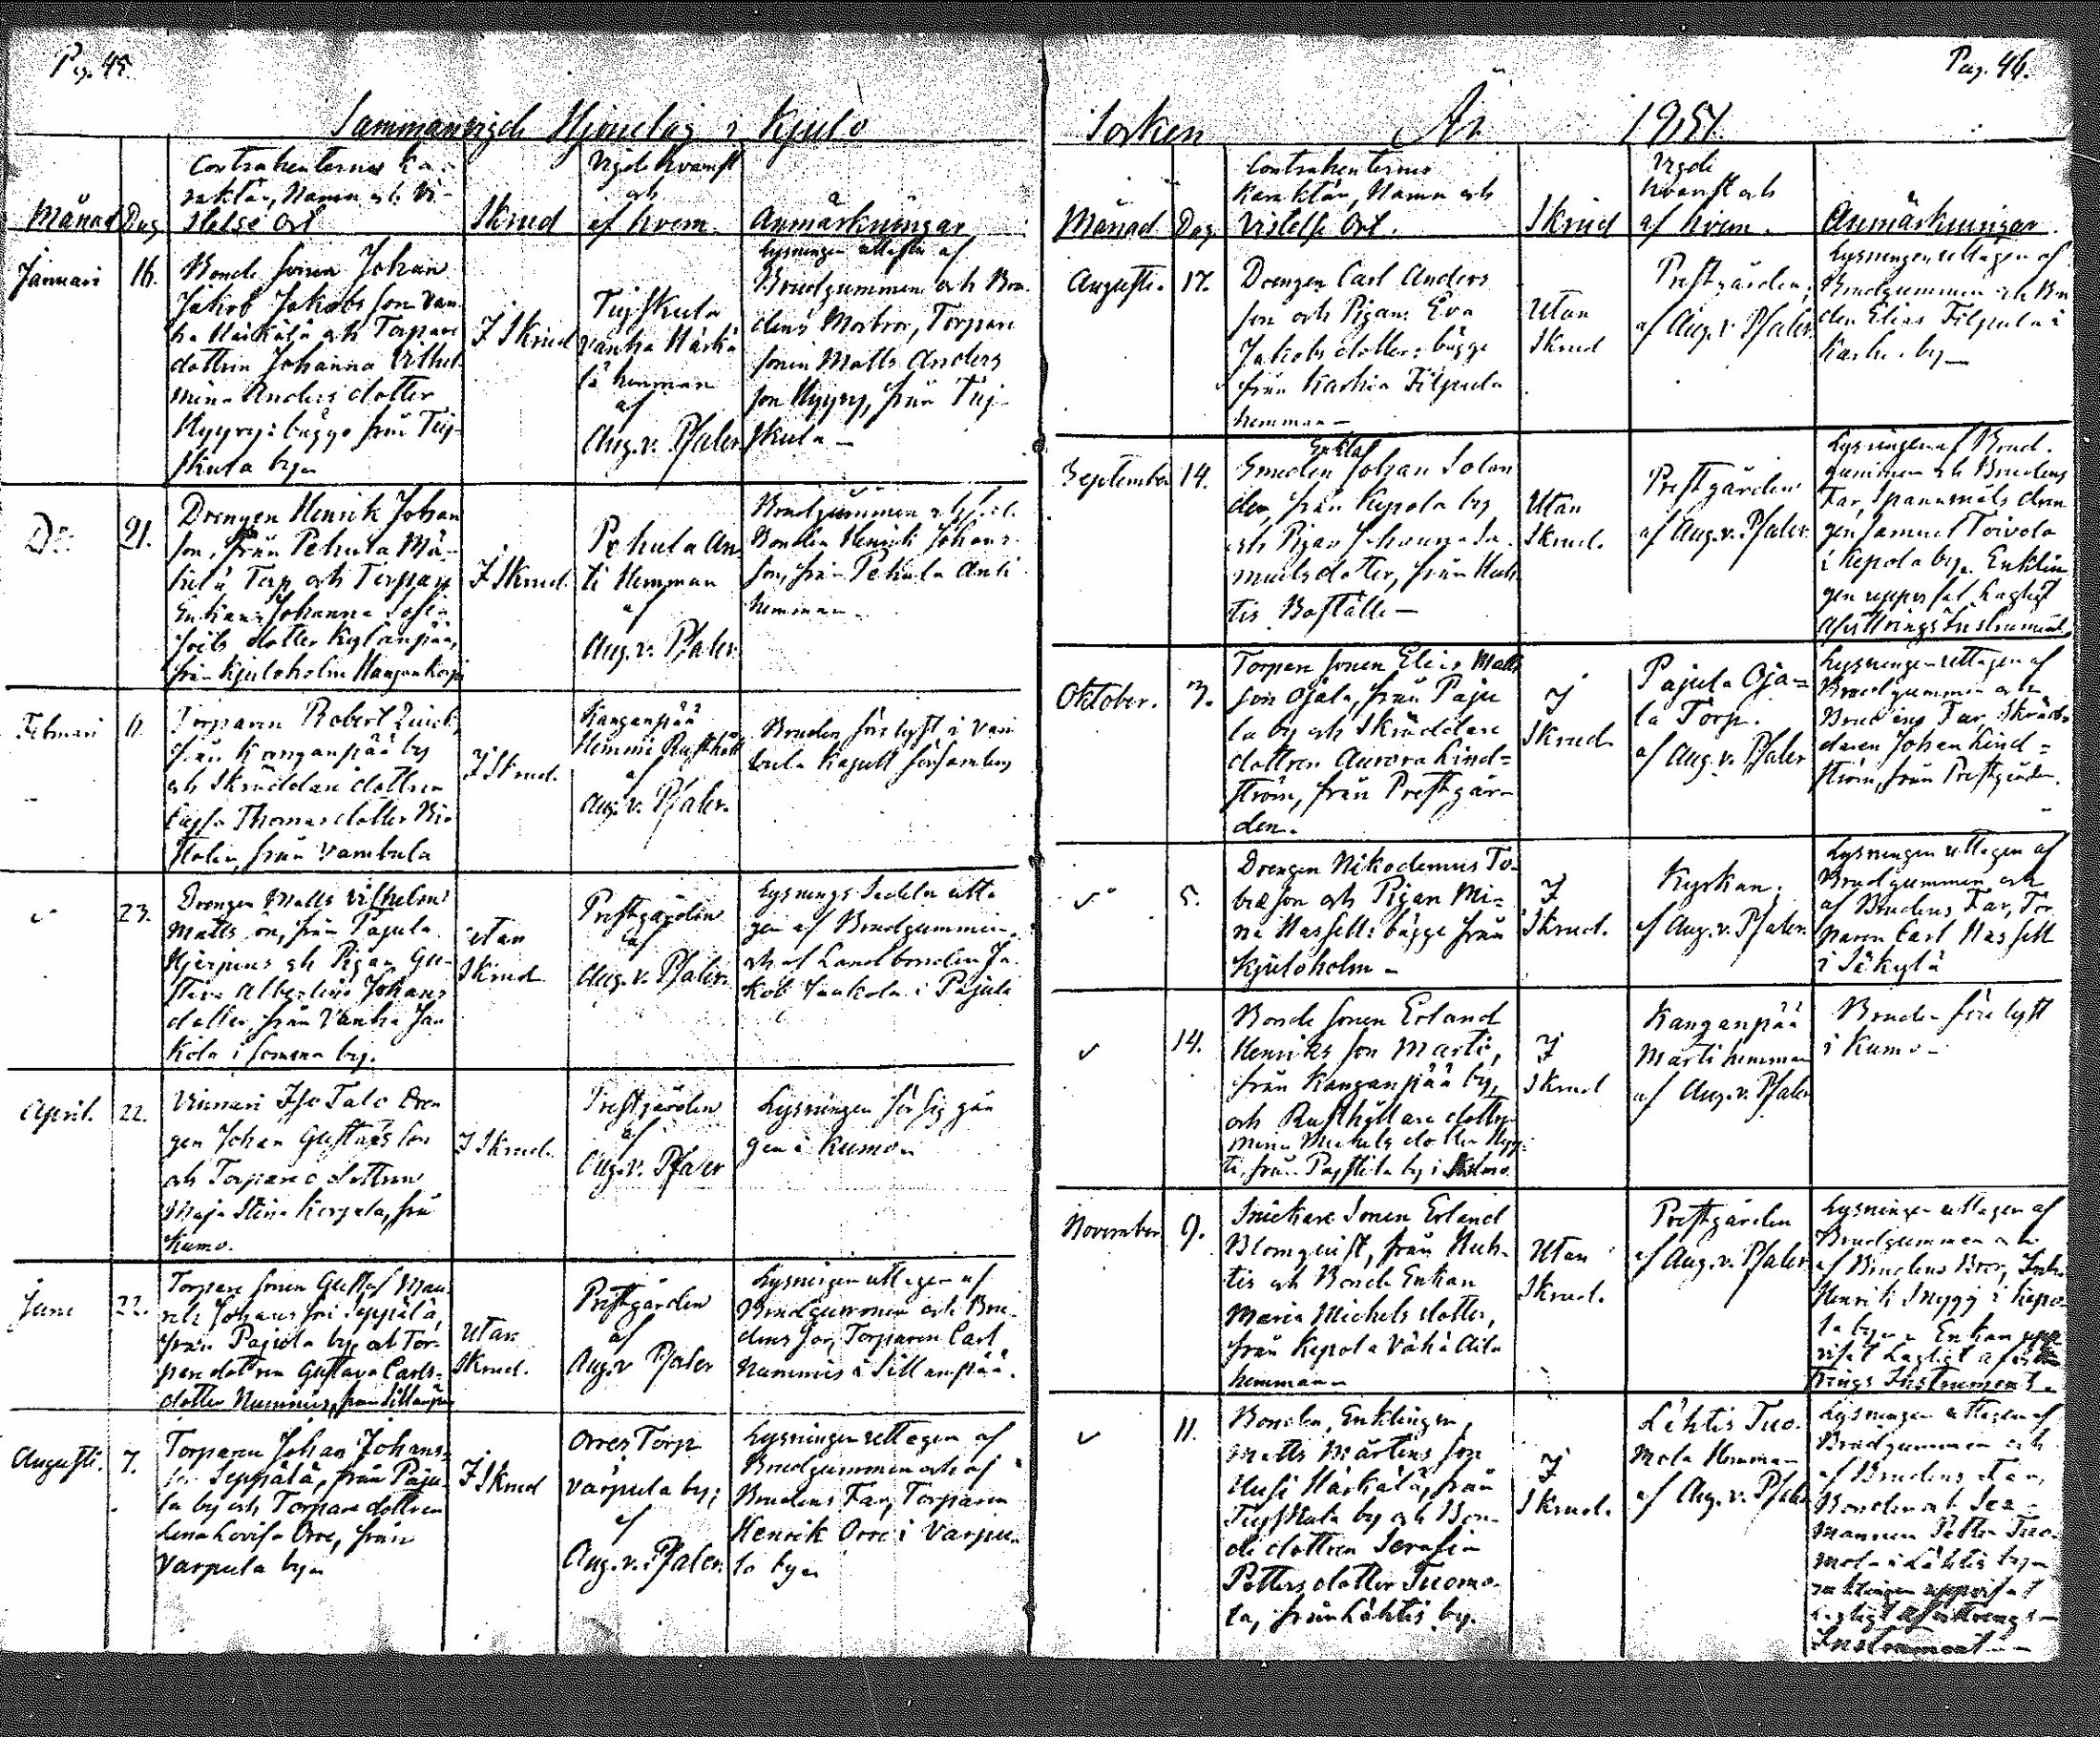 Pag. 45.
Sammanvigde Hjonelag i Kjulo
Månad
Dag
Contrahenternes Ka-
raktär, Namn och Vi-
stelse Ort
Skrud
Vigde hvarest
och
af hvem.
Anmärkningar
Januari
16.
Bonde sonen Johan
Jakob Jakobs son Van
ha Härkälä och Torpare
dottren Johanna Vilhel
mina Anders dotter
Hyyry: bägge från Tuj
skula by
I Skrud
Tujskula
vanha Härkä
lä hemman
af
Aug. v. Pfaler
Lysningen uttagen af
Brudgummen och Bru
dens Morbror, Torpare
sonen Matts Anders
son Hyyry, från Tuj
skula
Do
21.
Drengen Henrik Johan
son, från Pehula Mä-
kelä Torp och Torpare
Enkan Johanna Sofia
dotter Kylänpää,
från Kjuloholm Hangankorpi
I Skrud.
Pehula An
ti Hemman
af
Aug. v. Pfaler
Brudgummen
Bonden Henrik Johans
son, från Pehula Anti
hemman
Februari
11.
Torparen Robert Quick,
från Kanganpää by
och Skräddare dottren
Cajsa Thomas dotter
från Vambula
I Skrud.
Kanganpää
Hemmi Rusthåll
af
Aug. v. Pfaler.
Bruden förlyst i Vam
bula Kapell församling
23.
Drengen Matts Vilhelm
Matts son, från Pajula
och Pigan Gu-
stava Albertina Johans
dotter, från Vanha Jaa
kola i Somera by.
utan
Skrud
Prestgården
af
Aug. v. Pfaler.
Lysnings Sedeln utta
gen af Brudgummen,
och af Landbonden Ja
kob Jaakola i Pajula
April.
22.
Vinnari Iso Talo Dren
gen Johan Gustafs son
och Torpare dottren
Maja Stina Kerpula, från
Kumo.
I Skrud.
Prestgården
af
Aug. v. Pfaler
Lysningen för sig gån
gen i Kumo
Juni
22.
Torpare sonen Gustaf Mau
ritz Johans son Seppälä,
från Pajula by, och Tor-
pare dottren Gustava Carls-
dotter Nummis, från Sillanpää
Utan
Skrud.
Prestgården
af
Aug. v. Pfaler
Lysningen uttagen af
Brudgummen och Bru
dens far, Torparen Carl
Nummis i Sillanpää.
Augusti.
7.
Torparen Johan Johans
son Seppälä, från Paju
la by och Torpare dottren
Lena Lovisa Orre, från
Varpula by
I Skrud
Orres Torp
Varpula by;
af
Aug. v. Pfaler.
Lysningen uttagen af
Brudgummen och af
Brudens Far, Torparen
Henrik Orre i Varpu
la by
Pag. 46.
Socken År 1851
Månad
Dag
Contrahenternes
Karaktär, Namn och
Vistelse Ort.
Skrud
Vigde
hvarest och
af hvem.
Anmärkningar.
Augusti.
17.
Drengen Carl Anders
son och Pigan Eva
Jakobs dotter: bägge
från Karhia Filpula
hemman
Utan
Skrud
Prestgården;
af Aug. v. Pfaler.
Lysningen uttagen af
Brudgummen och Bon
den Elias Filpula i
Karhia by
September
14.
Enkl.
Smeden Johan Solan
der, från Kepola by
och Pigan Johanna Sa
muels dotter, från Huh
tis Boställe
Utan
Skrud.
Prestgården
af Aug. v. Pfaler.
Lysningen af Brud.
gummen och Brudens
Far, Spannmåls dren
gen Samuel Toivola
i Kepola by. Enklin
gen uppvisat Lagligt
Afvittrings Instrument.
Oktober.
3.
Torpare sonen Elias Matts
son Ojala, från Paju
la by och Skräddare
dottren Aurora Lind=
ström, från Prestgår-
den.
I
Skrud.
Pajula Oja=
la Torp.
af Aug. v. Pfaler
Lysningen uttagen af
Brudgummen och
Brudens Far, Skräd-
daren Johan Lind=
ström, från Prestgården.
5.
Drengen Nikodemus To-
biæson och Pigan Mi=
na Hassell: bägge från
Kjuloholm
I
Skrud.
Kyrkan;
af Aug. v. Pfaler.
Lysningen uttagen af
Brudgummen och
af Brudens Far, Tor
paren Carl Hassell
i Säkylä
14.
Bonde sonen Erland
Henriks son Marti,
från Kanganpää by,
och Rusthållare dottren
Mina Michels dotter
från by i Kumo
I
Skrud
Kanganpää
Marti hemman
af Aug. v. Pfaler
Bruden förelyst
i Kumo
November
9.
Snickare Sonen Erland
Blomquist, från Huh-
tis och Bonde Enkan
Maria Michels dotter,
från Kepola Vähä Äila
hemman
Utan
Skrud.
Prestgården
af Aug. v. Pfaler
Lysningen uttagen af
Brudgummen och
af Brudens Bror,
Henrik Snygg i Kepo-
la by. Enkan upp
visat Lagligt afvit
trings Instrument.
11.
Bonden, Enklingen,
Matts Mårtens son
Uusi Härkälä, från
Tujskula by och Bon
de dottren Serafia
Petters dotter Tuomo
la, från Lähtis by.
I
Skrud.
Lähtis Tuo.
mola Hemman
af Aug. v. Pfaler
Lysningen uttagen af
Brudgummen och
af Brudens Far,
Bonden och Sex-
mannen Petter Tuo
mola i Lähtis by
Enklingen uppvisat
lagligt Afvittrings-
Instrument